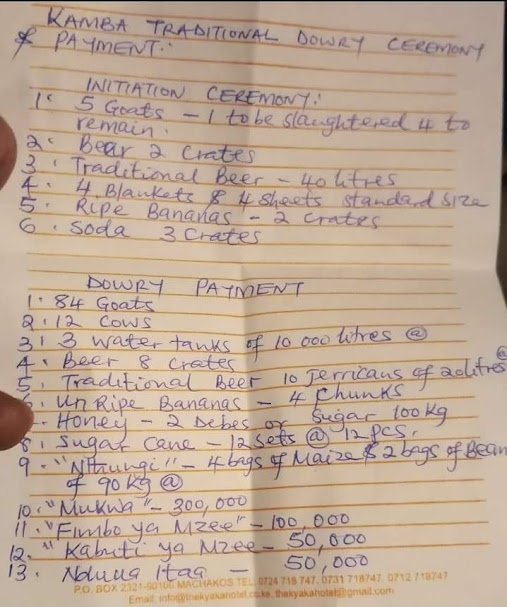 KAMBA TRADITIONAL DOWRY CEREMONY
& PAYMENT:
INITIATION CEREMONY:
1. 5 Goats - 1 to be slaughtered 4 to
remain.
2. Bear 2 Crates
3. Traditional Beer - 40 litres
4. 4 Blankets & 4 sheets standard size
5. Ripe Bananas - 2 Crates
6. Soda 3 Crates
DOWRY PAYMENT
1. 84 Goats
2. 12 Cows
3. 3 water tanks of 10 000 litres @
4. Beer 8 crates
5. Traditional Beer 10 Jerricans of 20 litres @
6. Un Ripe Bananas - 4 Chunks
Honey - 2 Debes or Sugar 100 Kg
8. Sugar Cane - 12 sets @ 12 pcs.
9. "Nthungi" - 4 bags of Maize & 2 bags of Bean
of 90 Kg @
10. "Mukwa" - 300,000
11. "Fimbo ya Mzee" - 100,000
12. "Kabuti ya Mzee - 50,000
13. Nduua Itaa - 50,000
P.O. BOX 2321-90100 MACHAKOS TEL. 0724 718 747, 0731 718747, 0712 718747
Email: info@thekyakahotel.co.ke, thekyakahotel@gmail.com